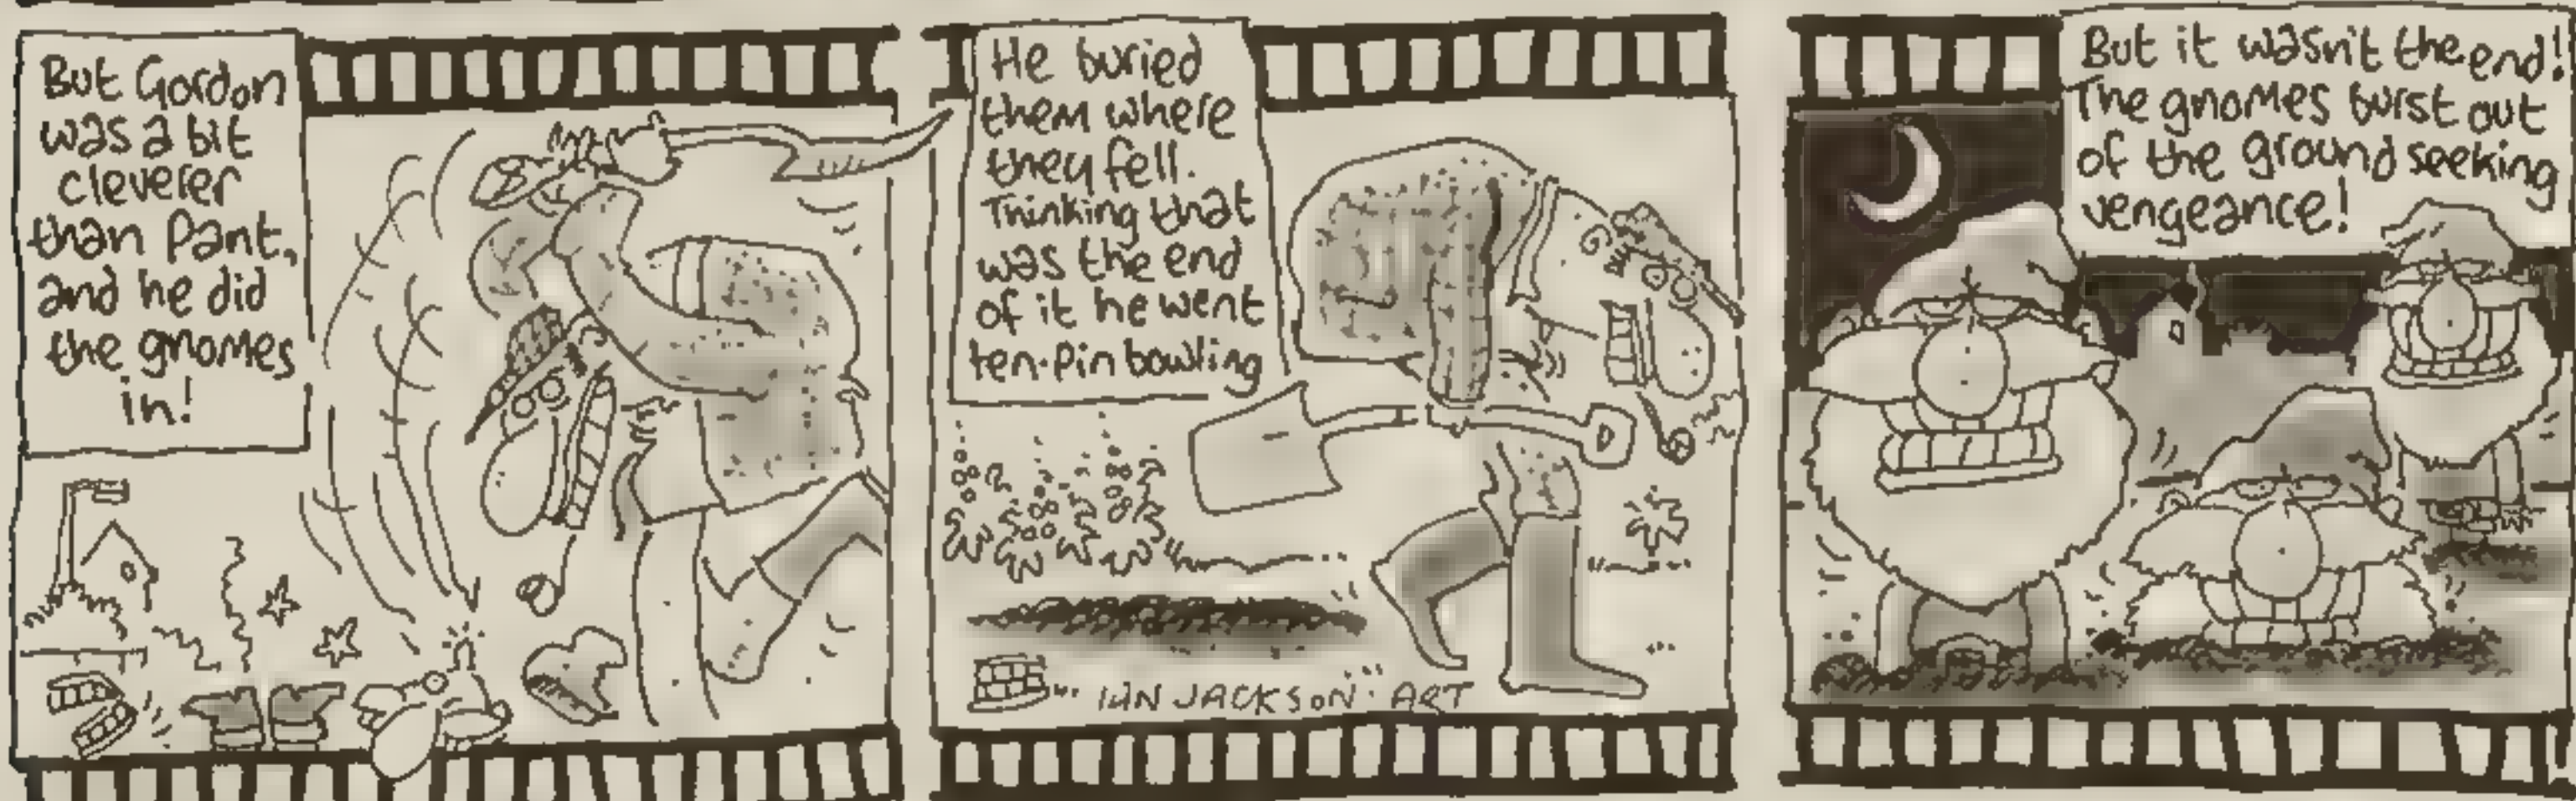 But Gordon
was a bit
cleverer
than Pant,
and he did
the gnomes
in!
He buried
them where
they fell.
Thinking that
was the end
of it he went
ten-pin bowling
IAN JACKSON ART
But it wasn't the end!
The gnomes burst out
of the ground seeking
vengeance!